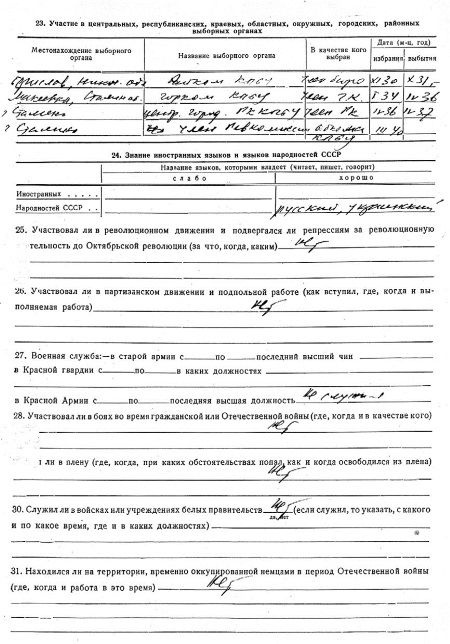 23. Участие в центральных, республиканских, краевых, областных, окружных, городских, районных
выборных органах
Местонахождение выборного органа Название выборного органа В качестве кого выбран Дата (м-ц, год)
избрания выбытия
КП(б)У XI 30 X 31
Макеевка, горком КП(б)У член ГК I 34 IV 36
? Сталино РК КП(б)У член РК IV 36 IV 37
? Сталино член Ревкомиссии КП(б)У
24. Знание иностранных языков и языков народностей СССР
Название языков, которыми владеет (читает, пишет, говорит)
слабо хорошо
Иностранных
Народностей СССР русский, украинский
25. Участвовал ли в революционном движении и подвергался ли репрессиям за революционную
тельность до Октябрьской революции (за что, когда, каким) Нет
26. Участвовал ли в партизанском движении и подпольной работе (как вступил, где, когда и вы-
полняемая работа) Нет
27. Военная служба:—в старой армии с по последний высший чин
в Красной гвардии с по в каких должностях
в Красной Армии с по последняя высшая должность Не служил
28. Участвовал ли в боях во время гражданской или Отечественной войны (где, когда и в качестве кого)
Нет
ли в плену (где, когда, при каких обстоятельствах попал, как и когда освободился из плена)
Нет
30. Служил ли в войсках или учреждениях белых правительств Нет (если служил, то указать, с какого
да, нет
и по какое время, где и в каких должностях)
31. Находился ли на территории, временно оккупированной немцами в период Отечественной войны
(где, когда и работа в это время) Нет